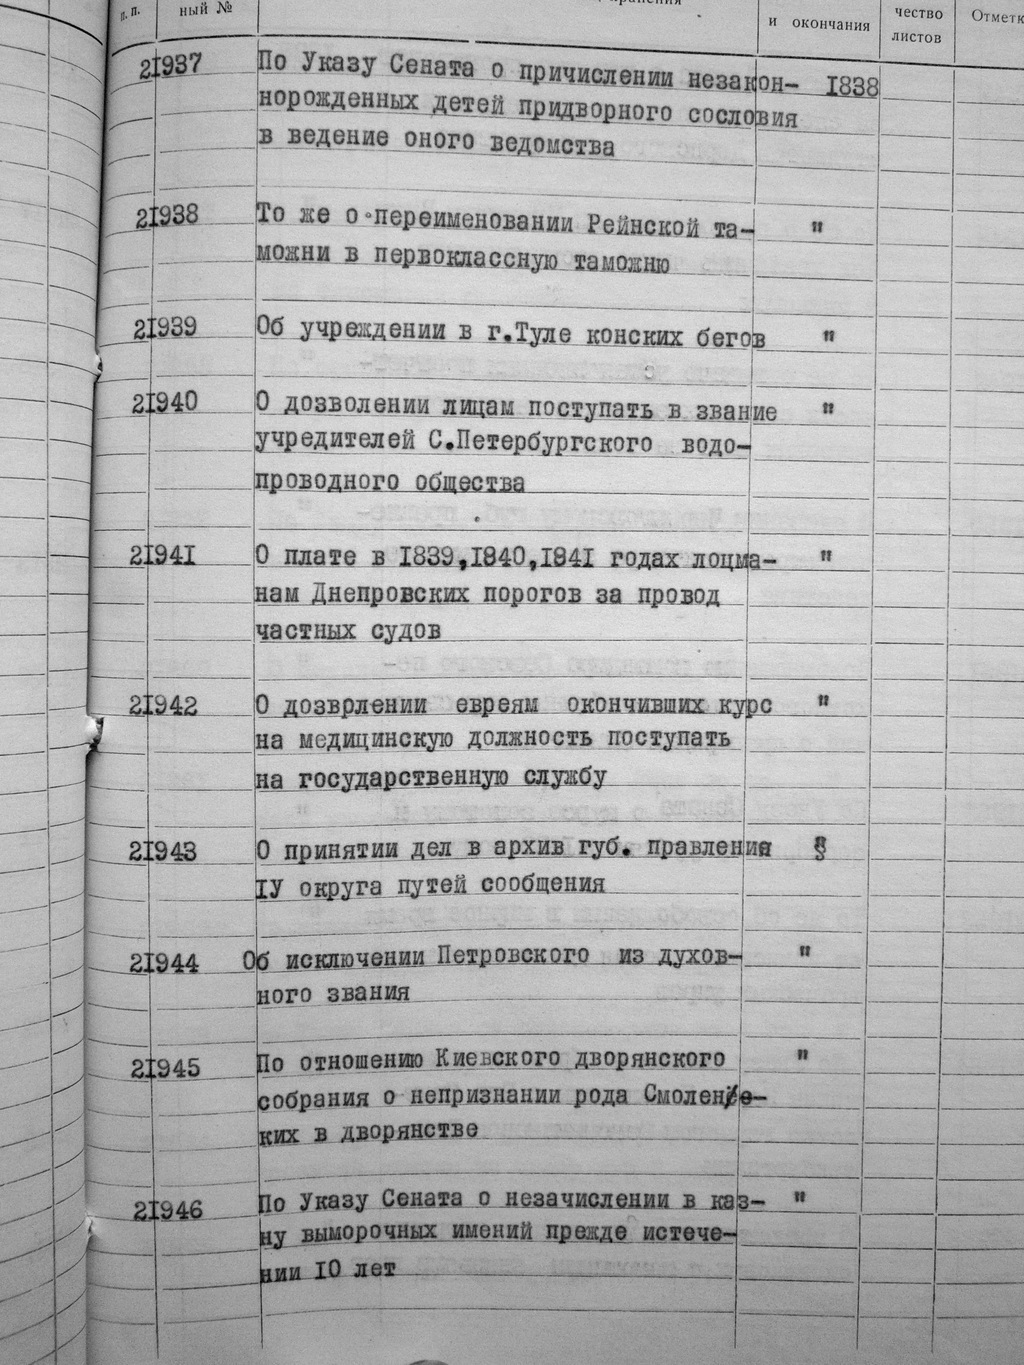 п. п.
ный №
и окончания
чество
листов
Отметк
21937 По Указу Сената о причислении незакон- 1838
норожденных детей придворного сословия
в ведение оного ведомства
21938 То же о переименовании Рейнской та- "
можни в первоклассную таможню
21939 Об учреждении в г.Туле конских бегов "
21940 О дозволении лицам поступать в звание "
учредителей С.Петербургского водо-
проводного общества
21941 О плате в 1839,1840,1841 годах лоцма- "
нам Днепровских порогов за провод
частных судов
21942 О дозврлении евреям окончивших курс "
на медицинскую должность поступать
на государственную службу
21943 О принятии дел в архив губ. правления §
IУ округа путей сообщения
21944 Об исключении Петровского из духов- "
ного звания
21945 По отношению Киевского дворянского "
собрания о непризнании рода Смолен/с-
ких в дворянстве
21946 По Указу Сената о незачислении в каз- "
ну выморочных имений прежде истече-
нии 10 лет